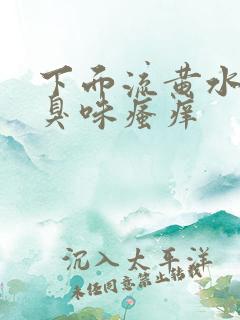 下面流黄水
臭味瘙痒
沉入太平洋
未经同意禁止转载